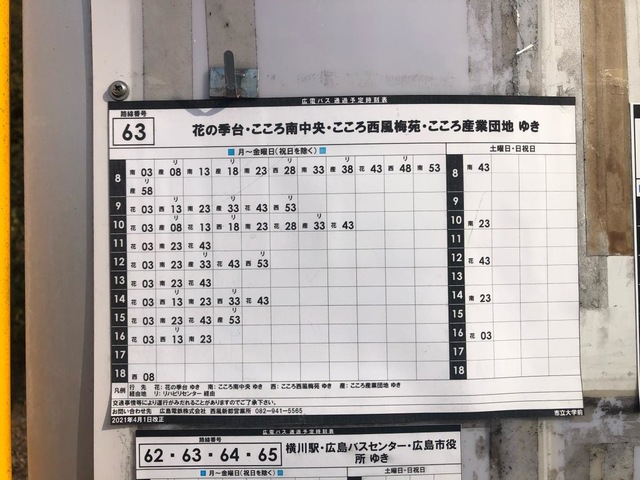 広電バス 通過予定時刻表
路線番号
63
花の季台・こころ南中央・こころ西風梅苑・こころ産業団地 ゆき
月～金曜日(祝日を除く) 土曜日・日祝日
リ リ リ リ リ
8 南 03 産 08 南 13 産 18 南 23 西 28 南 33 産 38 花 43 西 48 南 53 8 南 43
リ
産 58
リ リ リ
9 花 03 西 13 南 23 産 33 花 43 西 53 9
リ リ リ
10 花 03 産 08 花 13 西 18 南 23 花 28 産 33 花 43 10 南 23
11 花 03 南 23 花 43 11
リ リ
12 花 03 南 23 産 33 花 43 西 53 12 花 43
13 花 03 南 23 花 43 13
リ リ
14 花 03 西 13 南 23 西 33 花 43 14 南 23
リ
15 花 03 南 23 花 43 産 53 15
リ
16 花 03 西 13 南 23 16 花 03
17 17
18 西 08 18
凡例 行 先 花:花の季台 ゆき 南:こころ南中央 ゆき 西:こころ西風梅苑 ゆき 産:こころ産業団地 ゆき
経由地 リ:リハビリセンター 経由
交通事情等により運行がみだれることがありますのでご了承下さい。
お問い合わせ先 広島電鉄株式会社 西風新都営業所 082-941-5565
2021年4月1日改正 市立大学前
広電バス 通過予定時刻表
路線番号
62・63・64・65
横川駅・広島バスセンター・広島市役所 ゆき
月～金曜日(祝日を除く) 土曜日・日祝日